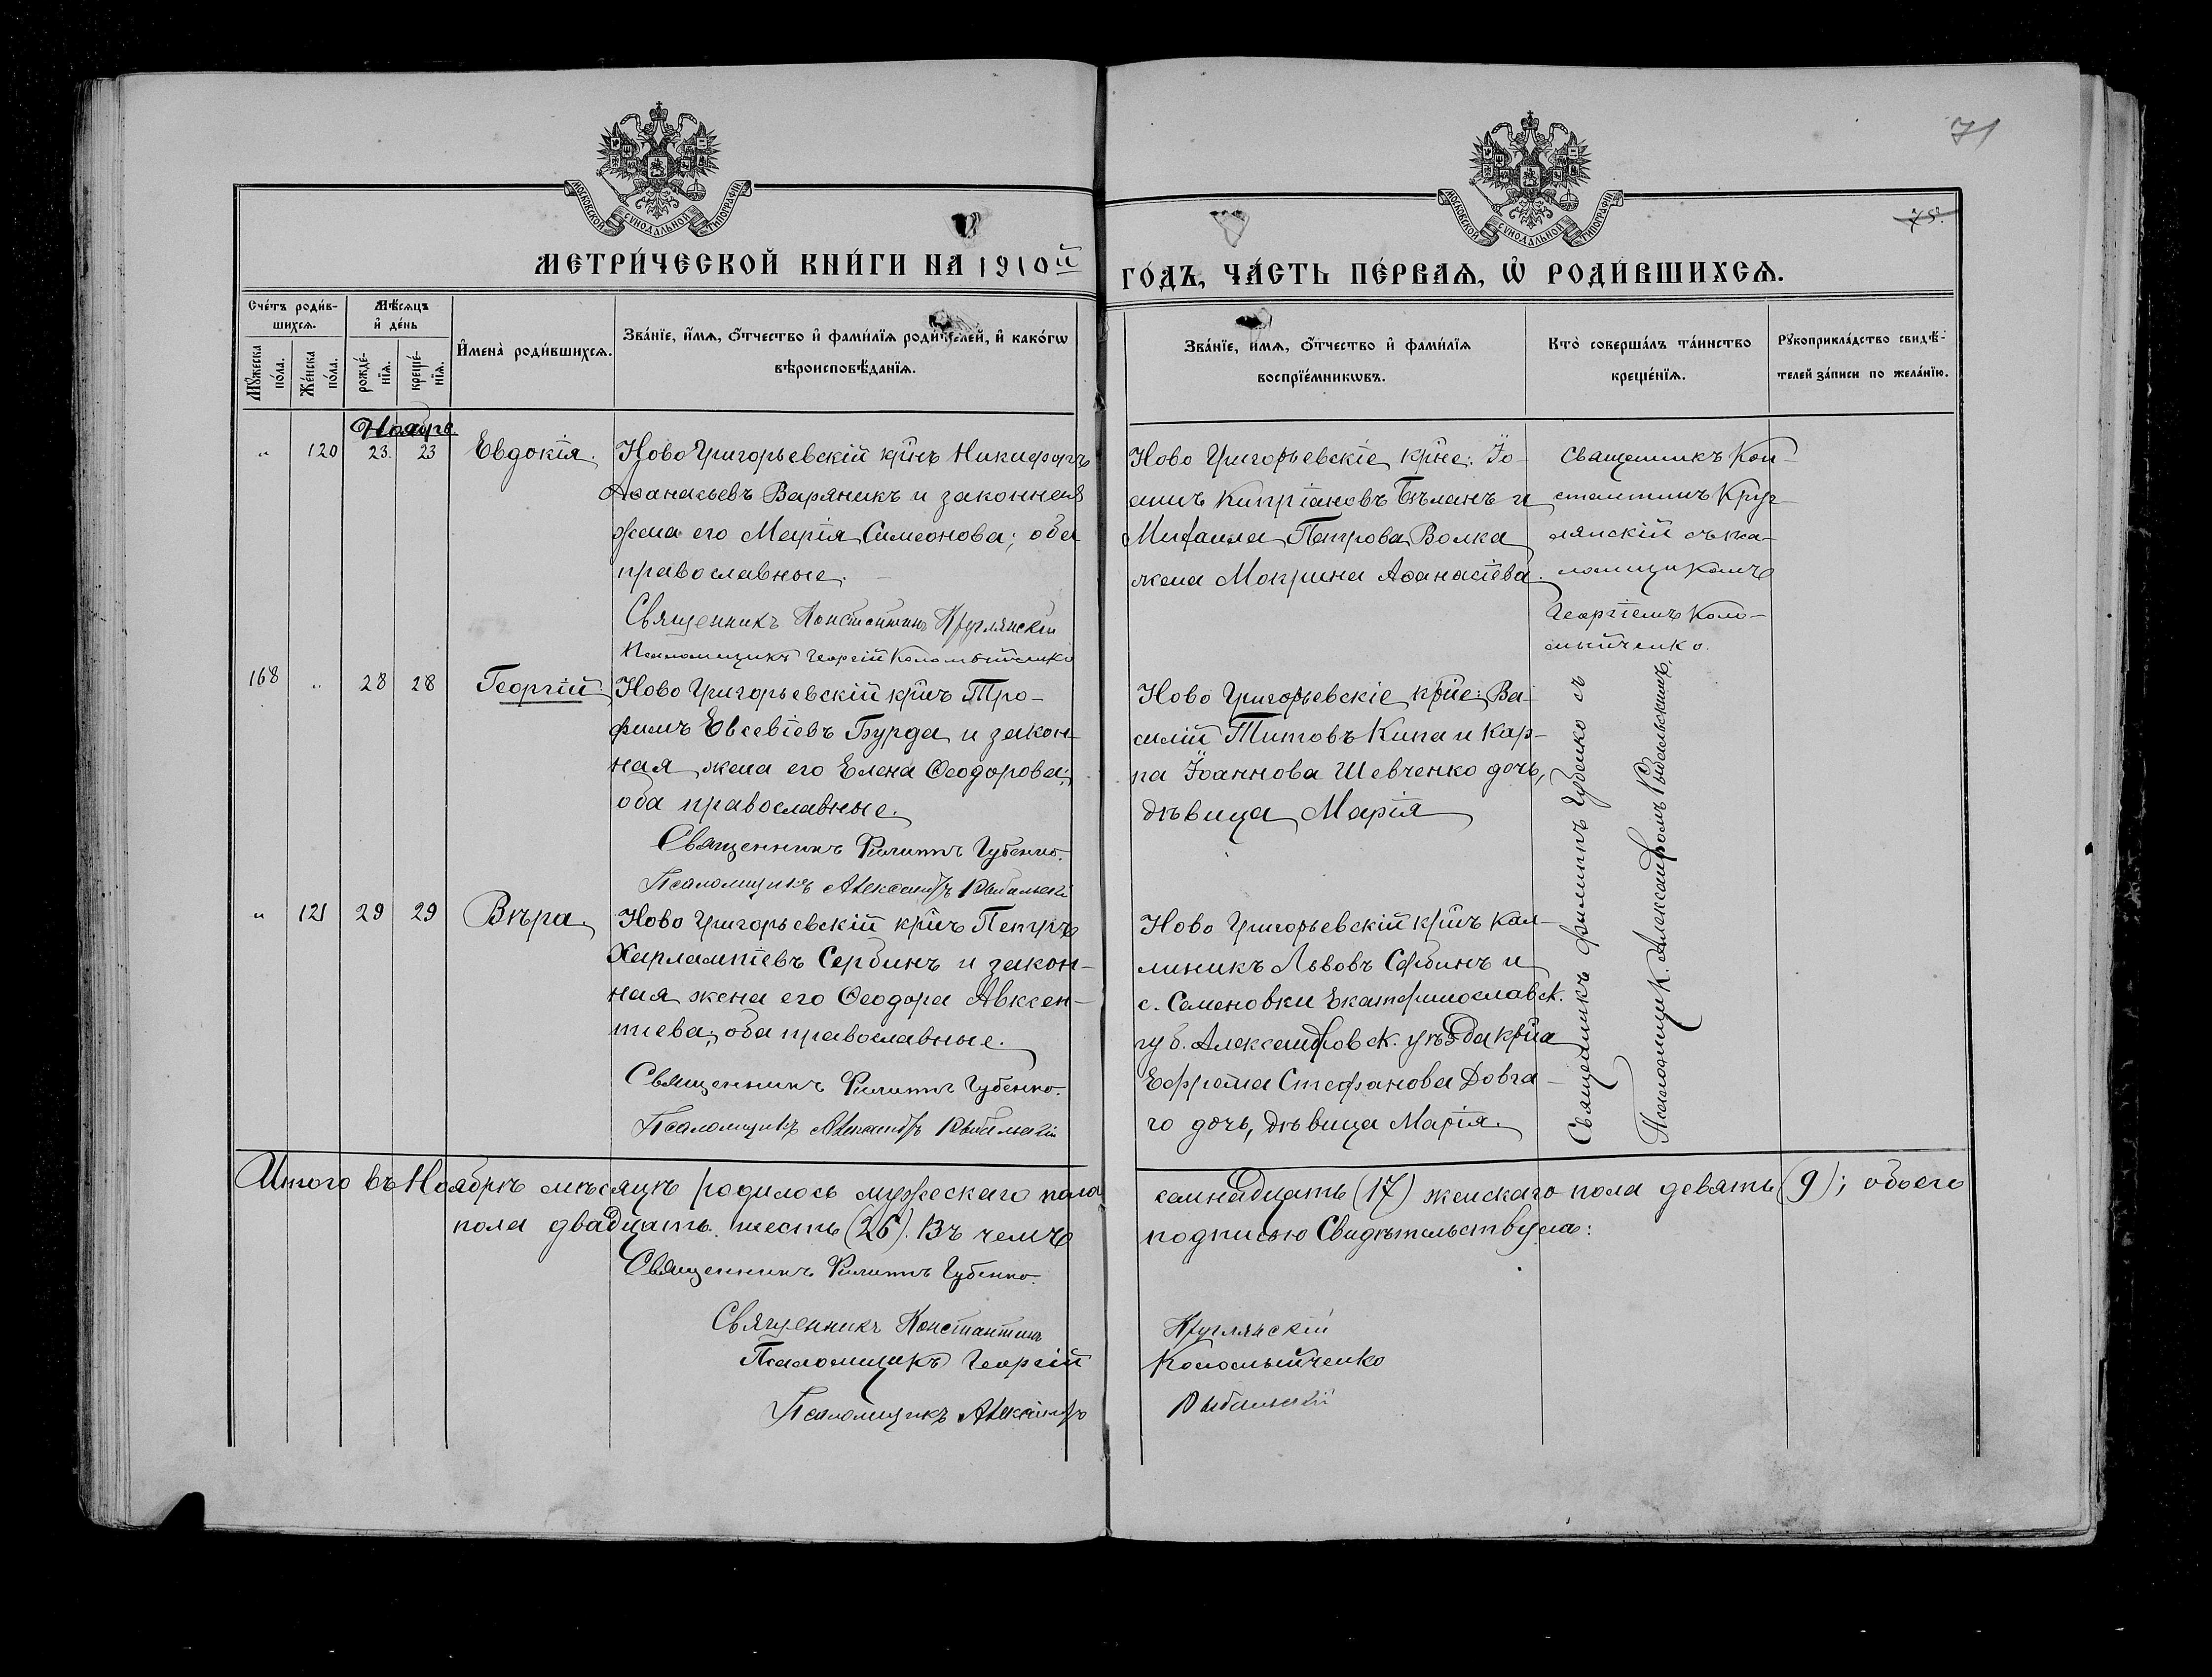 71
75.
МОСКОВСКОЙ СѴНОДАЛЬНОЙ ТИПОГРАФІИ
МОСКОВСКОЙ СѴНОДАЛЬНОЙ ТИПОГРАФІИ
МЕТРИ́ЧЕСКОЙ КНИ́ГИ НА 1910й
ГО́ДЪ, ЧА́СТЬ ПЕ́РВАѦ, Ѡ҆ РОДИ́ВШИХСѦ.
Сче́тъ роди́в-
шихсѧ.
Мꙋ́жеска по́ла.
Же́нска по́ла.
Мѣ́сѧцъ
и҆ де́нь
рожде́-
нїѧ.
креще́-
нїѧ.
И҆мена̀ роди́вшихсѧ.
Зва́нїе, и҆́мѧ, ѻ҆́тчество и҆ фами́лїѧ роди́телей, и҆ како́гѡ
вѣроисповѣ́данїѧ.
Зва́нїе, и҆́мѧ, ѻ҆́тчество и҆ фами́лїѧ
воспрїе́мникѡвъ.
Кто̀ соверша́лъ та́инство
креще́нїѧ.
Рꙋкоприкла́дство свидѣ́-
телей за́писи по жела́нїю.
Ноябре.
" 120 23. 23 Евдокія.
Ново Григорьевскій крнъ Никифоръ
Аѳанасьевъ Варяникъ и законная
жена его Марія Симеонова; оба
православные.
Священникъ Константинъ Круглянскій
Псаломщикъ Георгій Коломыйченко
Ново Григорьевскіе крне: Іо-
аннъ Кипріановъ Бѣланъ и
Михаила Петрова Волка
жена Мокрина Аѳанасіева.
Священникъ Кон-
стантинъ Круг-
лянскій съ пса-
ломщикомъ
Георгіемъ Коло-
мыйченко.
168 " 28 28 Георгій
Ново Григорьевскій крнъ Тро-
фимъ Евсевіевъ Бурда и закон-
ная жена его Елена Ѳеодорова;
оба православные.
Священникъ Филиппъ Губенко.
Псаломщикъ Александръ Рыбальскій
Ново Григорьевскіе крне: Ва-
силій Титовъ Кипа и Кар-
па Іоаннова Шевченко дочь,
дѣвица Марія
Священникъ Филиппъ Губенко съ
Псаломщик. Александромъ Рыбальскимъ.
" 121 29 29 Вѣра.
Ново Григорьевскій крнъ Петръ
Харлампіевъ Сербинъ и закон-
ная жена его Ѳеодора Авксен-
тіева; оба православные.
Священникъ Филиппъ Губенко.
Псаломщикъ Александръ Рыбальскій
Ново Григорьевскій крнъ Кал-
линикъ Львовъ Сербинъ и
с. Семеновки Екатеринославск.
губ. Александровск. уѣзда крна
Ефрема Стефанова Довга-
го дочь, дѣвица Марія.
Итого въ Ноябрѣ мѣсяцѣ родилось мужескаго пола
семнадцать (17) женскаго пола девять (9); обоего
пола двадцать шесть (26). Въ чемъ
подписью Свидѣтельствуемъ:
Священникъ Филиппъ Губенко.
Священникъ Константинъ Круглянскій
Псаломщикъ Георгій Коломыйченко
Псаломщикъ Александръ Рыбальскій